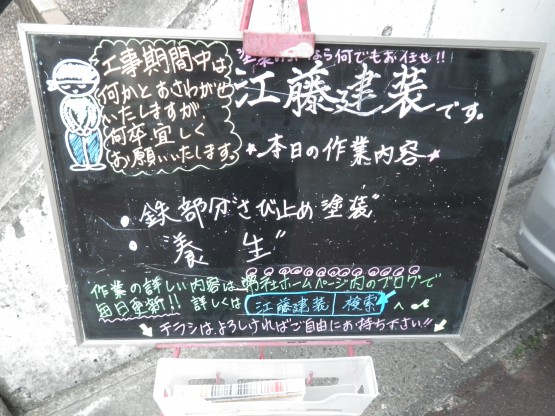 工事期間中は
何かとおさわがせ
いたしますが、
何卒宜しく
お願いいたします。
なら何でもお任せ!!
江藤建装です。
★本日の作業内容★
・鉄部分さび止め塗装"
・養 生"
作業の詳しい内容は弊社ホームページ内のブログで
毎日更新!! 詳しくは 江藤建装 検索 へ♪
チラシは、よろしければご自由にお持ち下さい!!